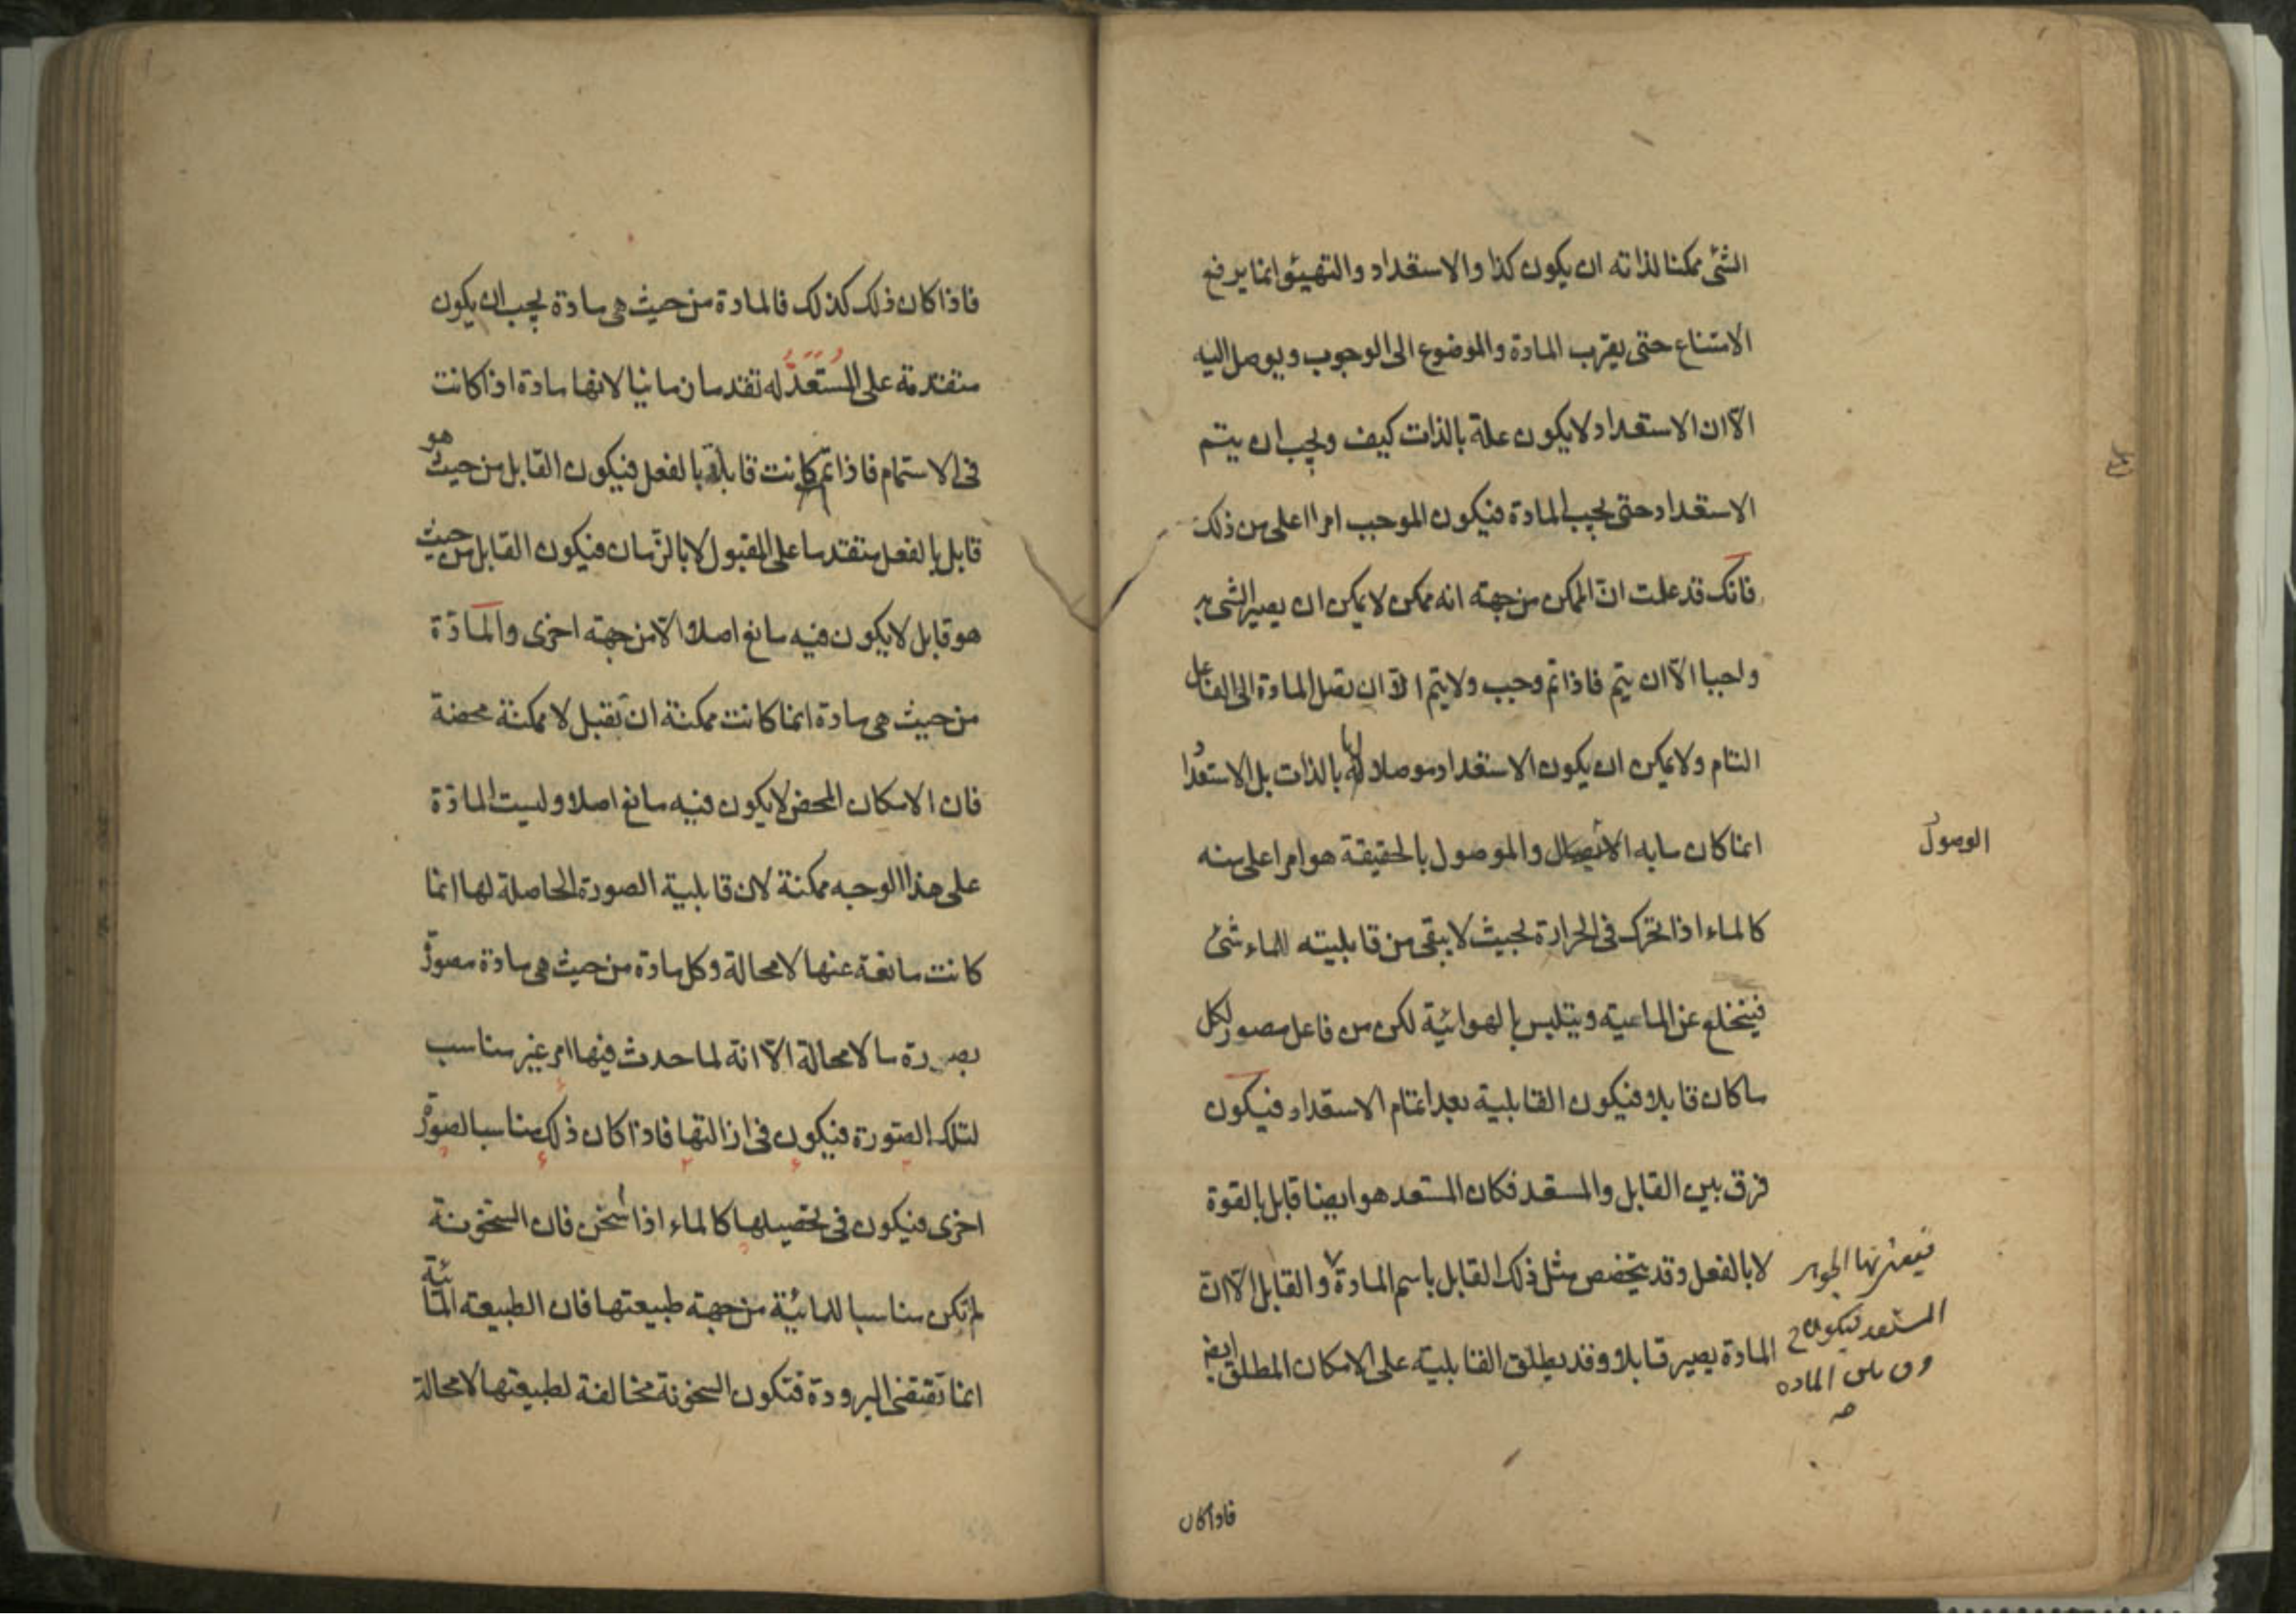 الشئ ممكنا لذاته ان يكون كذا والاستعداد والتهيئو انما يرفع
الامتناع حتى يقرب المادة والموضوع الى الوجوب ويوصل اليه
الا ان الاستعداد لا يكون علة بالذات كيف ويجب ان يتم
الاستعداد حتى يجب المادة فيكون الموجب امرا اعلى من ذلك
فانك قد علمت ان الممكن من جهته انه ممكن لا يمكن ان يصير الشئ به
واجبا الا ان يتم فاذا تم وجب ولا يتم الا ان تصل المادة الى الفاعل
التام ولا يمكن ان يكون الاستعداد موصلا لها بالذات بل الاستعداد
انما كان ما به الاتصال والموصول بالحقيقة هو امر اعلى منه
الوصول
كالماء اذا تحرك فى الحرارة بحيث لا يبقى من قابليته للماء شئ
فينخلع عن المائية ويتلبس بالهوائية لكن من فاعل مصور لكل
ما كان قابلا فيكون القابلية بعد اتمام الاستعداد فيكون
فرق بين القابل والمستعد فكان المستعد هو ايضا قابل بالقوة
لا بالفعل وقد يتخصص مثل ذلك القابل باسم المادة والقابل الا ان
المادة يصير قابلا وقد يطلق القابلية على الامكان المطلق ايضا
المستعد فيكون
المادة
فاذا كان
فاذا كان ذلك كذلك فالمادة من حيث هى مادة يجب ان يكون
متقدمة على المستعد له تقدما زمانيا لانها مادة اذا كانت
فى الاستتمام فاذا تم كانت قابلة بالفعل فيكون القابل من حيث هو
قابل بالفعل متقدما على المقبول لا بالزمان فيكون القابل من حيث
هو قابل لا يكون فيه مانع اصلا الا من جهته اخرى والمادة
من حيث هى مادة انما كانت ممكنة ان تقبل لا ممكنة محضة
فان الامكان المحض لا يكون فيه مانع اصلا وليست المادة
على هذا الوجه ممكنة لان قابلية الصورة الحاصلة لها انما
كانت مانعة عنها لا محالة وكل مادة من حيث هى مادة مصورة
بصورة ما لا محالة الا انه لما حدث فيها امر غير مناسب
لتلك الصورة فيكون فى ازالتها فاذا كان ذلك مناسبا لصورة
اخرى فيكون فى تحصيلها كالماء اذا سخن فان السخونة
لم تكن مناسبا للمائية من جهة طبيعتها فان الطبيعة المائية
انما تقتضى البرودة فتكون السخونة مخالفة لطبيعتها لا محالة